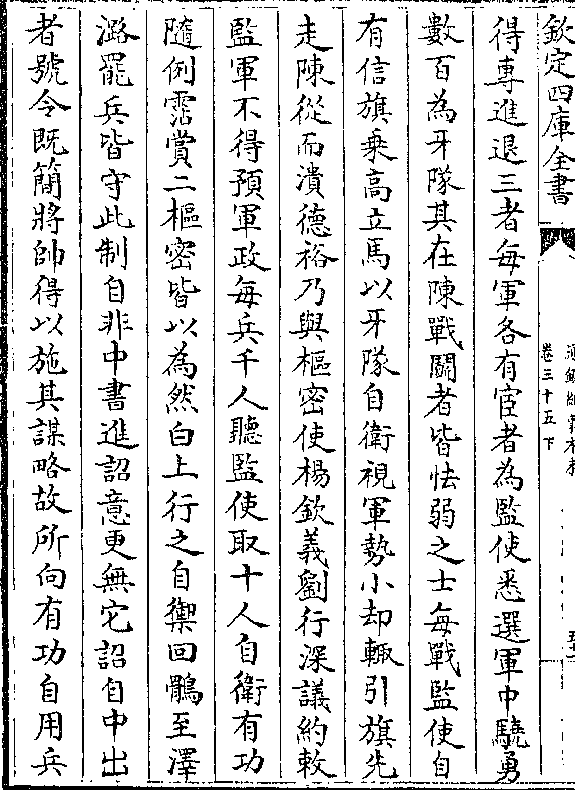 欽定四庫全書
卷三十五下
得專進退三者每軍各有宦者為監使悉選軍中驍勇
數百為牙隊其在陳戰鬭者皆怯弱之士每戰監使自
有信旗乗高立馬以牙隊自衛視軍勢小却輒引旗先
走陳從而潰德裕乃與樞密使楊欽義劉行深議約敕
監軍不得預軍政每兵千人聽監使取十人自衛有功
隨例霑賞二樞密皆以為然白上行之自禦回鶻至澤
潞罷兵皆守此制自非中書進詔意更無它詔自中出
者號令既簡將帥得以施其謀略故所向有功自用兵